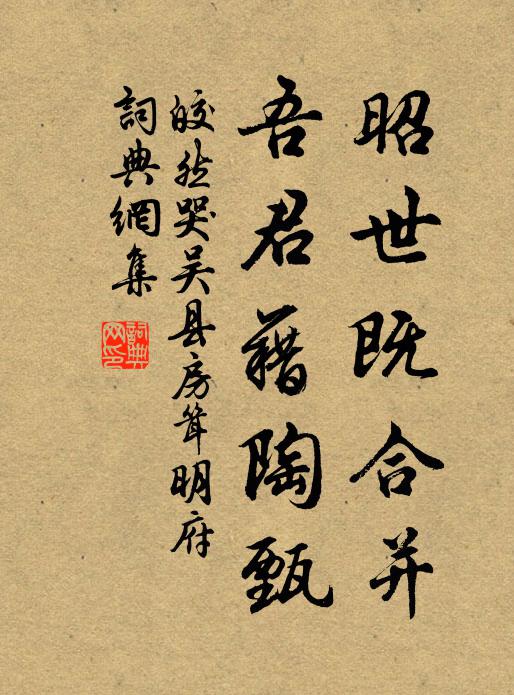 昭世既合并
吾君藉陶甄
皎然哭吴县房耸明府
詞典網集
詞典网印